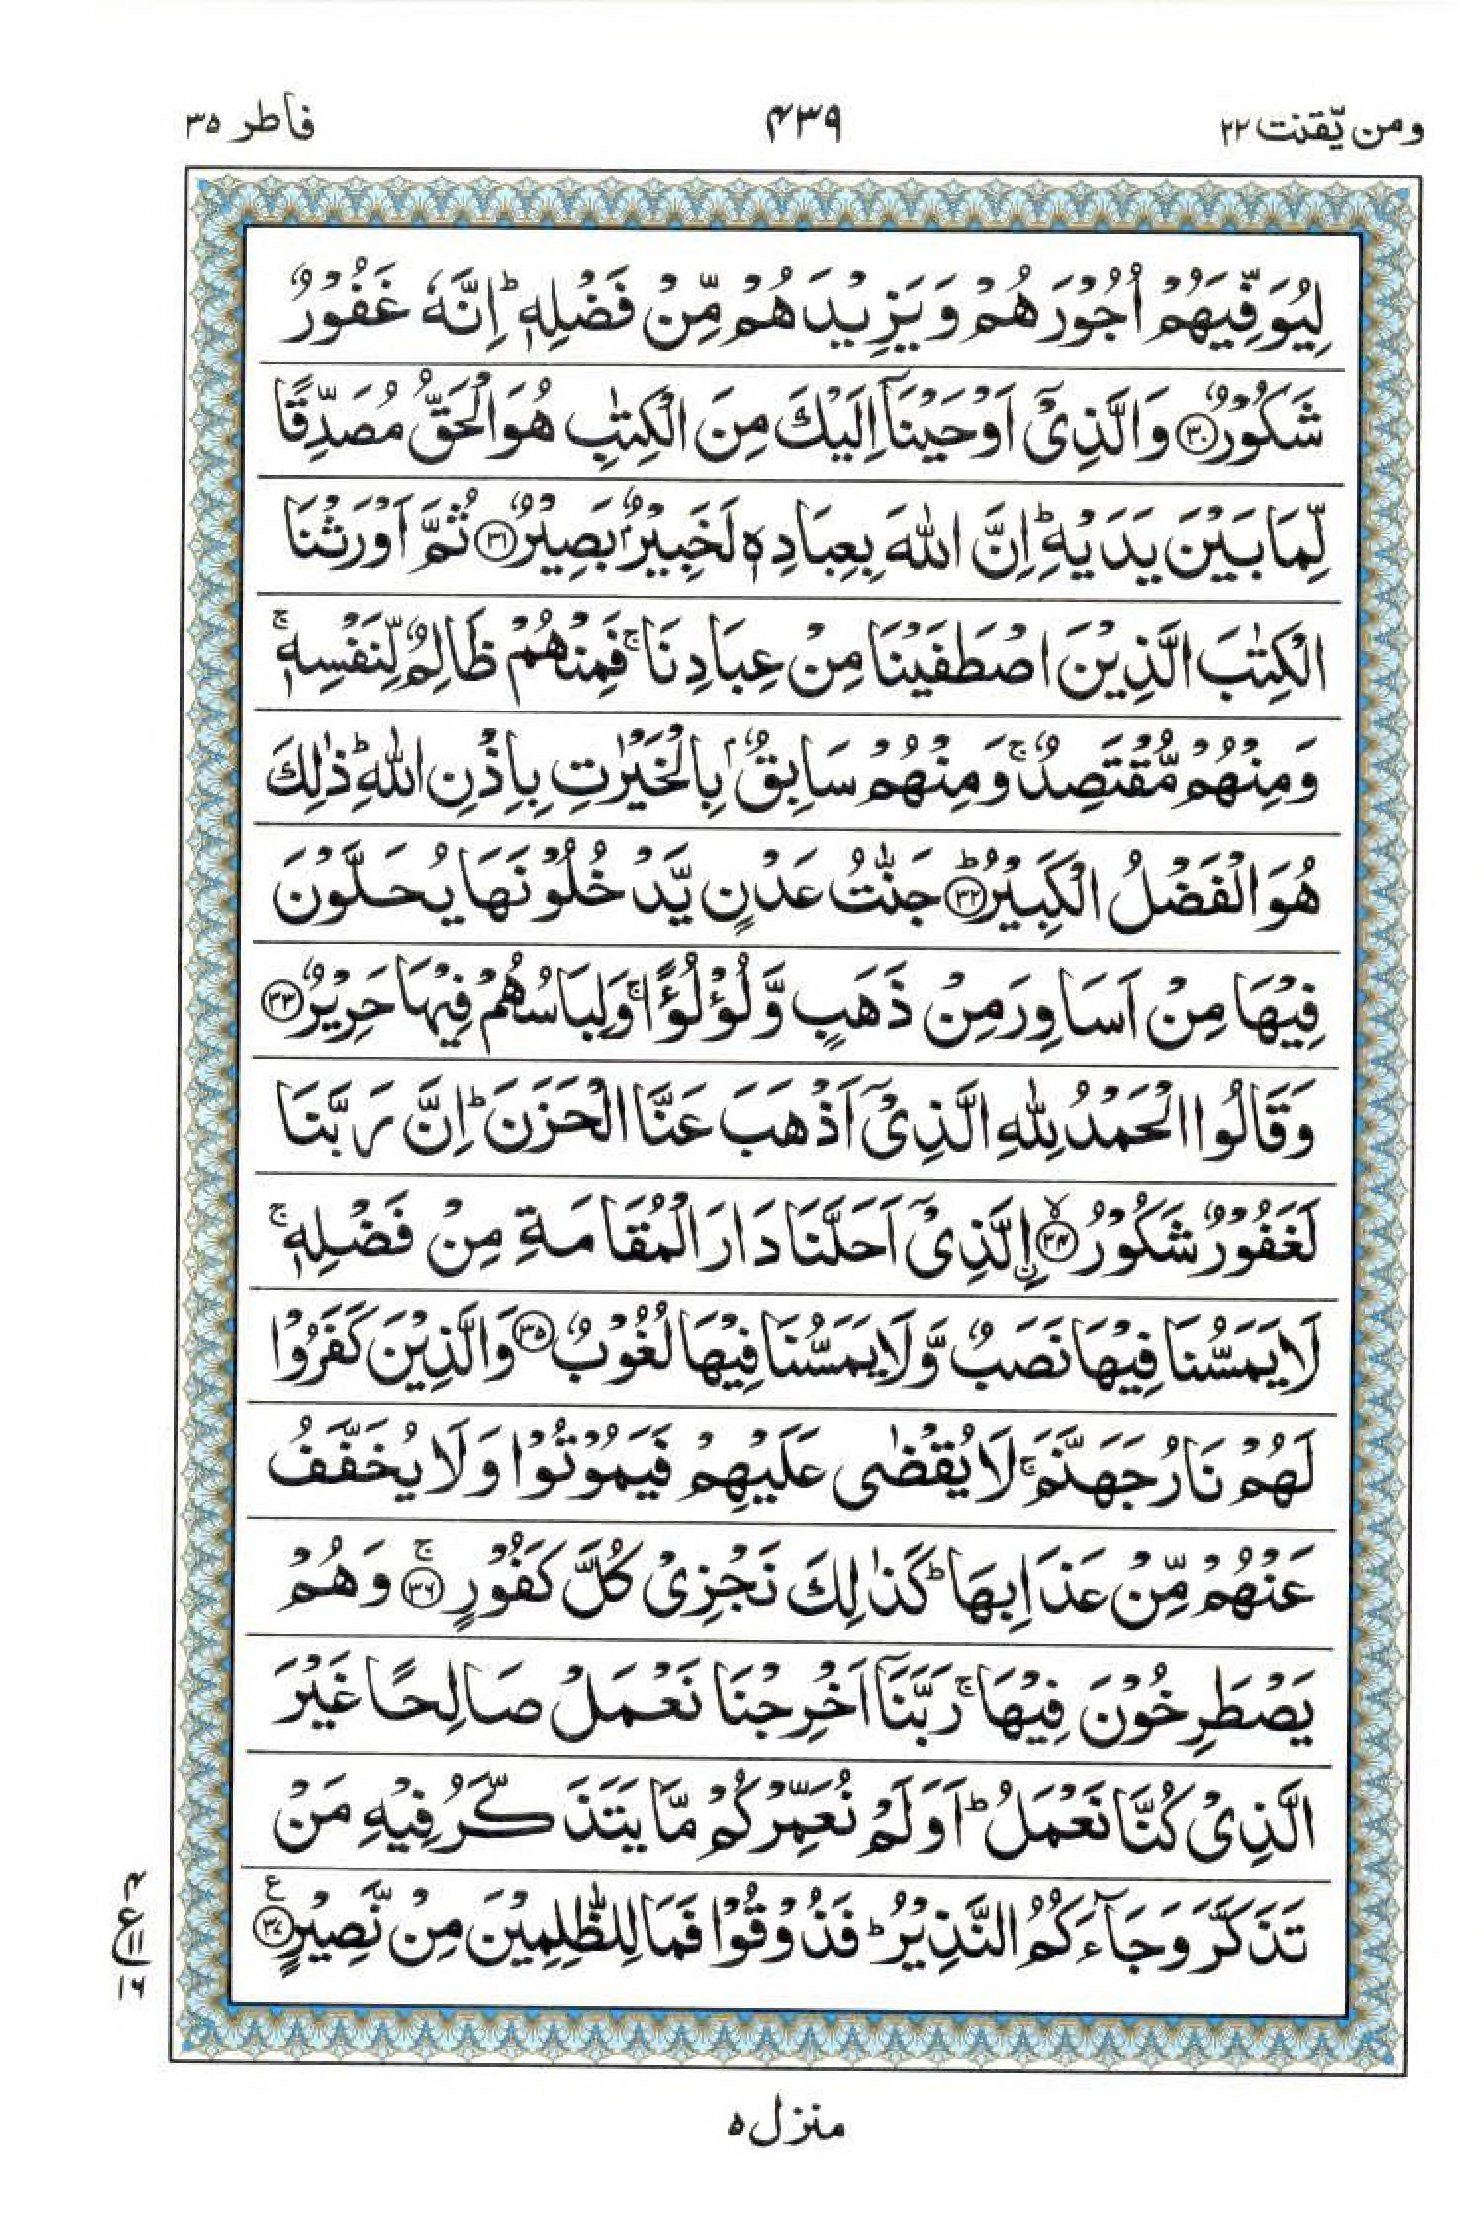 ومن يّقنت ٢٢ ٤٣٩ فاطر ٣٥
لِيُوَفِّيَهُمْ اُجُوْرَهُمْ وَيَزِيْدَهُمْ مِّنْ فَضْلِهٖ ؕ اِنَّهٗ غَفُوْرٌ
شَكُوْرٌ ﴿٣٠﴾ وَالَّذِىْۤ اَوْحَيْنَاۤ اِلَيْكَ مِنَ الْكِتٰبِ هُوَ الْحَقُّ مُصَدِّقًا
لِّمَا بَيْنَ يَدَيْهِ ؕ اِنَّ اللّٰهَ بِعِبَادِهٖ لَخَبِيْرٌۢ بَصِيْرٌ ﴿٣١﴾ ثُمَّ اَوْرَثْنَا
الْكِتٰبَ الَّذِيْنَ اصْطَفَيْنَا مِنْ عِبَادِنَا ۚ فَمِنْهُمْ ظَالِمٌ لِّنَفْسِهٖ ۚ
وَمِنْهُمْ مُّقْتَصِدٌ ۚ وَمِنْهُمْ سَابِقٌۢ بِالْخَيْرٰتِ بِاِذْنِ اللّٰهِ ؕ ذٰلِكَ
هُوَ الْفَضْلُ الْكَبِيْرُ ؕ ﴿٣٢﴾ جَنّٰتُ عَدْنٍ يَّدْخُلُوْنَهَا يُحَلَّوْنَ
فِيْهَا مِنْ اَسَاوِرَ مِنْ ذَهَبٍ وَّلُؤْلُؤًا ۚ وَلِبَاسُهُمْ فِيْهَا حَرِيْرٌ ﴿٣٣﴾
وَقَالُوا الْحَمْدُ لِلّٰهِ الَّذِىْۤ اَذْهَبَ عَنَّا الْحَزَنَ ؕ اِنَّ رَبَّنَا
لَغَفُوْرٌ شَكُوْرُ ۙ ﴿٣٤﴾ اِ۟لَّذِىْۤ اَحَلَّنَا دَارَ الْمُقَامَةِ مِنْ فَضْلِهٖ ۚ
لَا يَمَسُّنَا فِيْهَا نَصَبٌ وَّلَا يَمَسُّنَا فِيْهَا لُغُوْبٌ ﴿٣٥﴾ وَالَّذِيْنَ كَفَرُوْا
لَهُمْ نَارُ جَهَنَّمَ ۚ لَا يُقْضٰى عَلَيْهِمْ فَيَمُوْتُوْا وَلَا يُخَفَّفُ
عَنْهُمْ مِّنْ عَذَابِهَا ؕ كَذٰلِكَ نَجْزِىْ كُلَّ كَفُوْرٍ ۚ ﴿٣٦﴾ وَهُمْ
يَصْطَرِخُوْنَ فِيْهَا ۚ رَبَّنَاۤ اَخْرِجْنَا نَعْمَلْ صَالِحًا غَيْرَ
الَّذِىْ كُنَّا نَعْمَلُ ؕ اَوَلَمْ نُعَمِّرْكُمْ مَّا يَتَذَكَّرُ فِيْهِ مَنْ
تَذَكَّرَ وَجَآءَكُمُ النَّذِيْرُ ؕ فَذُوْقُوْا فَمَا لِلظّٰلِمِيْنَ مِنْ نَّصِيْرٍ ﴿٣٧﴾ ع
٤
ع ١١
١٦
منزل ٥